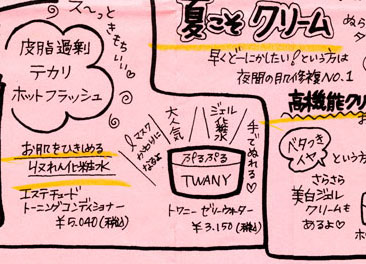 ス〜っと
きもちいい♡
皮脂過剰
テカリ
ホットフラッシュ
お肌をひきしめる
収れん化粧水
エステチュード
トーニングコンディショナー
¥5.040(税込)
夏こそクリーム
早くどーにかしたい!という方は
夜間の肌修復NO.1
マスク
かわりに
なるよ
大人気
ジェル
化粧水
手でぬれる♡
ぷるぷる
TWANY
トワニー ゼリーウォーター
¥3.150(税込)
高機能クリ
ベタつき
イヤ
という方
さらさら
美白ジェル
クリームも
あるよ♡